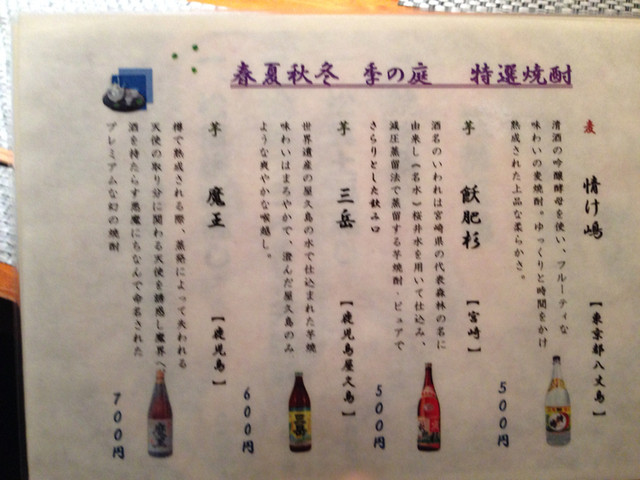 春夏秋冬 季の庭 特選焼酎
麦 情け嶋 【東京都八丈島】
清酒の吟醸酵母を使い、フルーティな
味わいの麦焼酎。ゆっくりと時間をかけ
熟成された上品な柔らかさ。
500円
芋 飫肥杉 【宮崎】
酒名のいわれは宮崎県の代表森林の名に
由来し（名水）桜井水を用いて仕込み、
減圧蒸留法で蒸留する芋焼酎・ピュアで
さらりとした飲み口
500円
芋 三岳 【鹿児島屋久島】
世界遺産の屋久島の水で仕込まれた芋焼
味わいはまろやかで、澄んだ屋久島のみ
ような爽やかな喉越し。
三岳
600円
芋 魔王 【鹿児島】
樽で熟成される際、蒸発によって失われる
天使の取り分に関わる天使を誘惑し魔界へ
酒を持たらす悪魔にちなんで命名された
プレミアムな幻の焼酎
魔王
700円